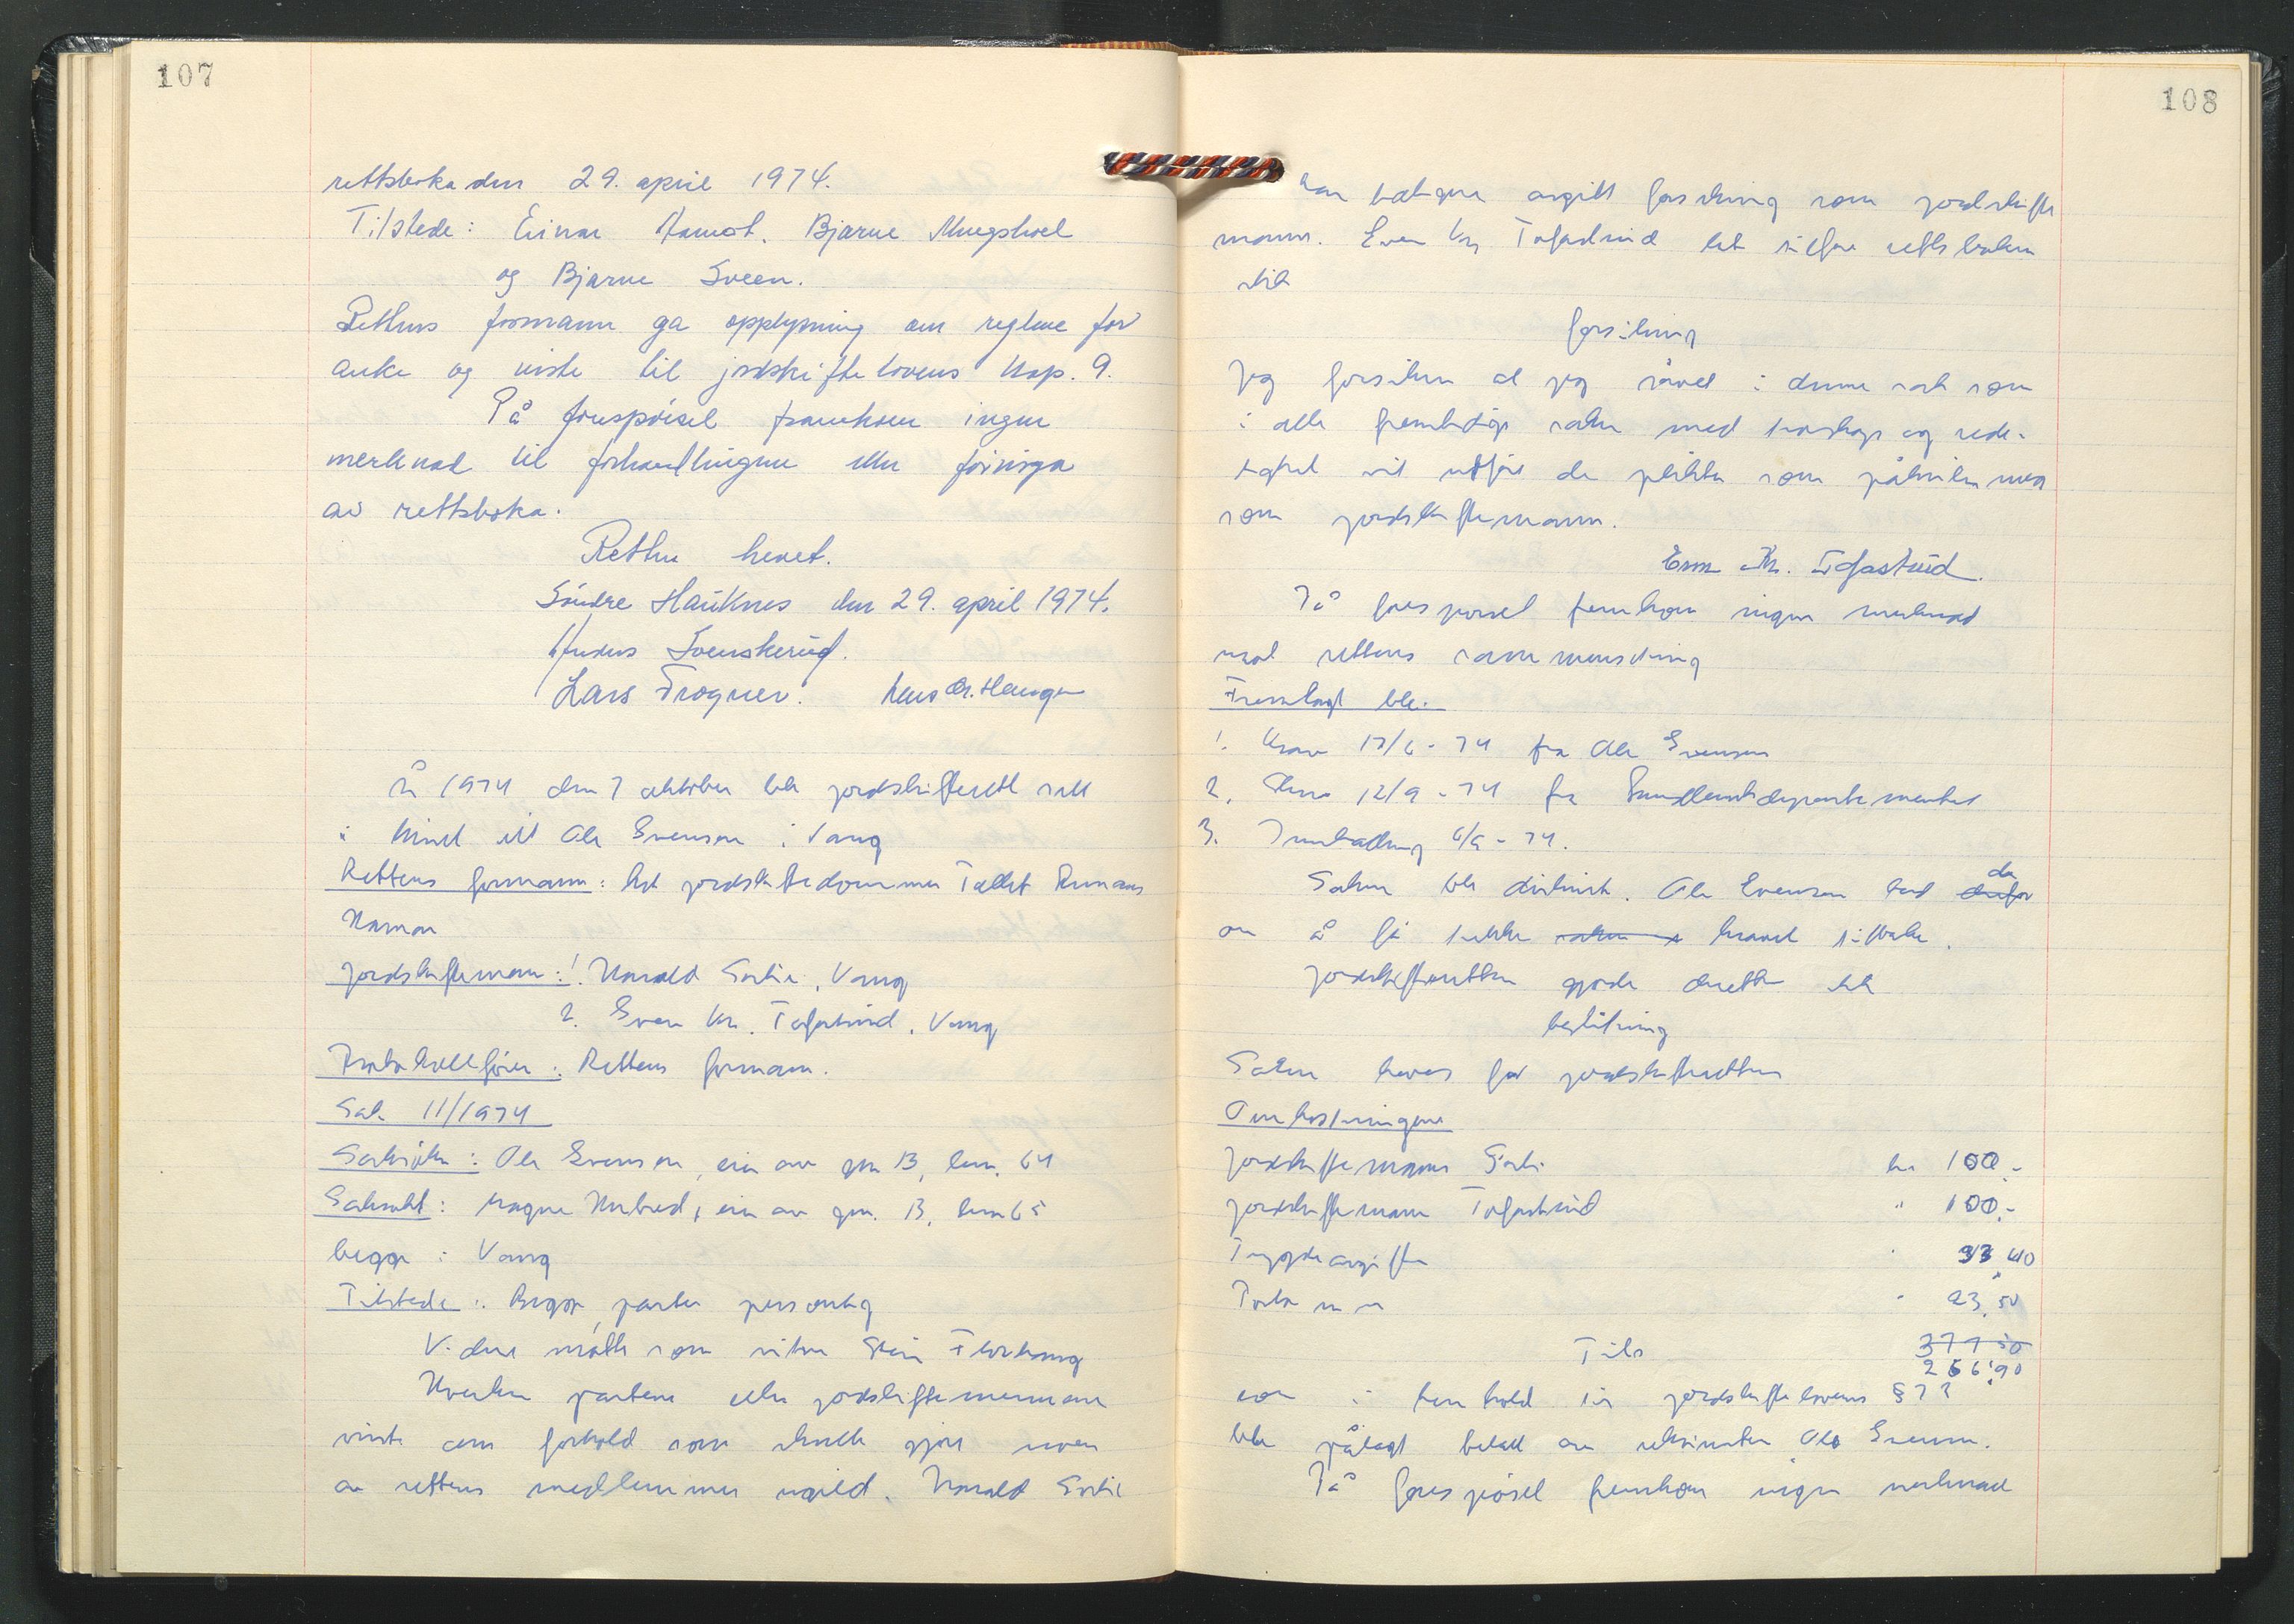 107
rettsboka den 29. april 1974.
Tilstede: Einar Aamot, Bjarne
og Bjarne Sveen.
Rettens formann ga opplysning om reglene for
anke og viste til jordskiftelovens kap. 9.
På forespørsel framkom ingen
merknad til forhandlingene eller føringa
av rettsboka.
Retten hevet.
Søndre Hauknes den 29. april 1974.
Svenskerud.
Lars Frogner. Haugen
År 1974 den 7 oktober ble jordskifterett satt
i hos Ole Evensen i Vang
Rettens formann: jordskiftedommer
Hamar
Jordskiftemenn: 1. Harald Sørlie, Vang
2. Even Kr. Tofastrud, Vang
Protokollfører: Rettens formann.
Sak 11/1974
Saksøker: Ole Evensen, eier av gnr 13, bnr. 64
Saksøkt: Magne, eier av gnr. 13, bnr 65
begge i Vang
Tilstede: Begge parter personlig
Videre møtte som vitne Stein
Hverken partene eller jordskiftemennene
visste om forhold som skulle gjøre noen
av rettens medlemmer ugild. Harald Sørlie
108
har tidligere avgitt forsikring som jordskifte
mann. Even Kr Tofastrud ble rettsboken
slik
forsikring
Jeg forsikrer at jeg såvel i denne sak som
i alle fremtidige saker med troskap og rede-
lighet vil utføre de plikter som påhviler meg
som jordskiftemann.
Even Kr. Tofastrud.
På forespørsel fremkom ingen merknad
mot rettens sammensetning
Fremlagt ble:
1. Krav 17/6-74 fra Ole Evensen
2. 12/9-74 fra Landbruksdepartementet
3. Innkalling -74.
Saken ble diskutert. Ole Evensen bad da
om å få trekke kravet tilbake.
Jordskifteretten gjorde deretter slik
beslutning
Saken heves for jordskifteretten
Omkostningene
Jordskiftemann Sørlie kr 100,-
Jordskiftemann Tofastrud " 100,-
Trygdeavgifter 40
Porto m m 23,50
Tils
266,90
som i henhold til jordskiftelovens §
ble pålagt betalt av rekvirenten Ole Evensen.
På forespørsel fremkom ingen merknad